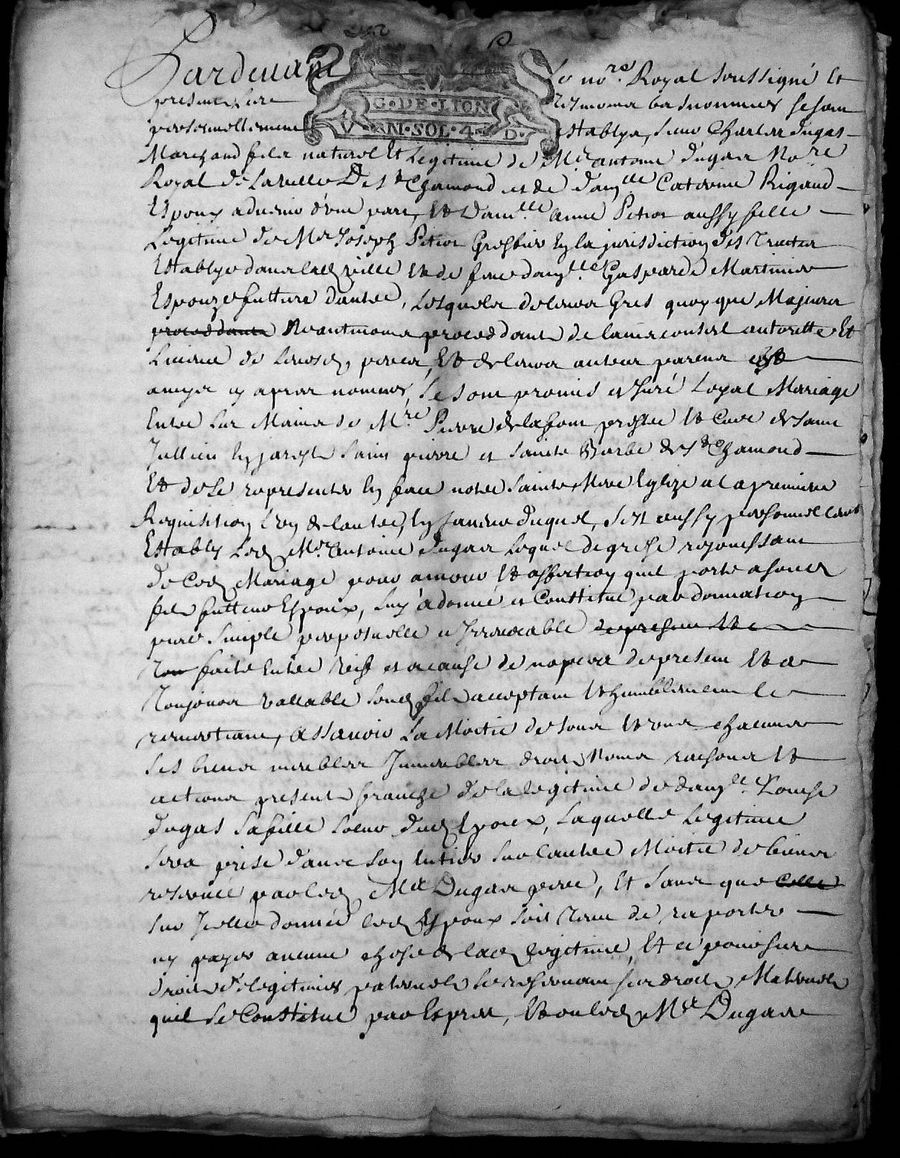 Pardevant Le no.re Royal soussigné Et
G·DE·LION
VN·SOL·4·D·
presents, sere tesmoins bas nommes se sont
personnellement establys, sieur Charles Dugas
Marchand fils naturel Et Legitime de M.e antoine Dugas No.re
Royal de La ville De S.t Chamond et de dam.lle Caterine Rigaud
Espoux advenir d'une part, Et Dam.lle anne Petior aussy fille
Legitime de M.re Joseph Petior Greffier En la jurisdiction des Tractes
Establye dans lad. ville Et de feue dam.lle Gasparde Martinier
Espouze future dautre, Lesquels de leurs Gres quoy que Majeurs
proceddants Neantmoins proceddants de ladvis conseil autoritte Et
Licence de leursd. peres, Et de leurs autres parens Et
amys cy apres nommes, se sont promis et Juré Loyal Mariage
Entre Les Mains de M.re Pierre prestre Et Cure de saint
Jullien En jarest saint pierre et sainte Barbe de S.t Chamond
Et de le representer En face notre sainte Mere Eglize a la premiere
Requisition l'un de lautre, En faveur duquel, s'est aussy personnellement
Estably Led. M.e Antoine Dugas Lequel de gré se rejouissant
de Ced. Mariage pour amour Et affection quil porte a sond.
fils futteur Espoux, luy a donné et Constitué par donnation
pure simple perpetuelle et Irrevocable de present Et
faite Entre Vifs et a cause de nopces de present Et a
Toujours vallable sond. fils acceptant Et humblement le
remerciant, assavoir La Moitié de tous Et uns chacuns
ses biens meubles Immeubles droits Noms raisons Et
actions present franche de la legitime de dam.lle Louise
Dugas sa fille soeur dud. Epoux, Laquelle Legitime
sera prise dans son Entier sur lautre Moitié de biens
reservée par led. M.e Dugas pere, Et sans que celle
sur Icelle donnée led. Espoux soit Tenu de raporter
ny payer aucune chose de lad. legitime, Et ce pour sure
droit de legitimes paternels se reservant ses droits Maternels
quil se Constitue par Expres, Et ou led. M.e Dugas